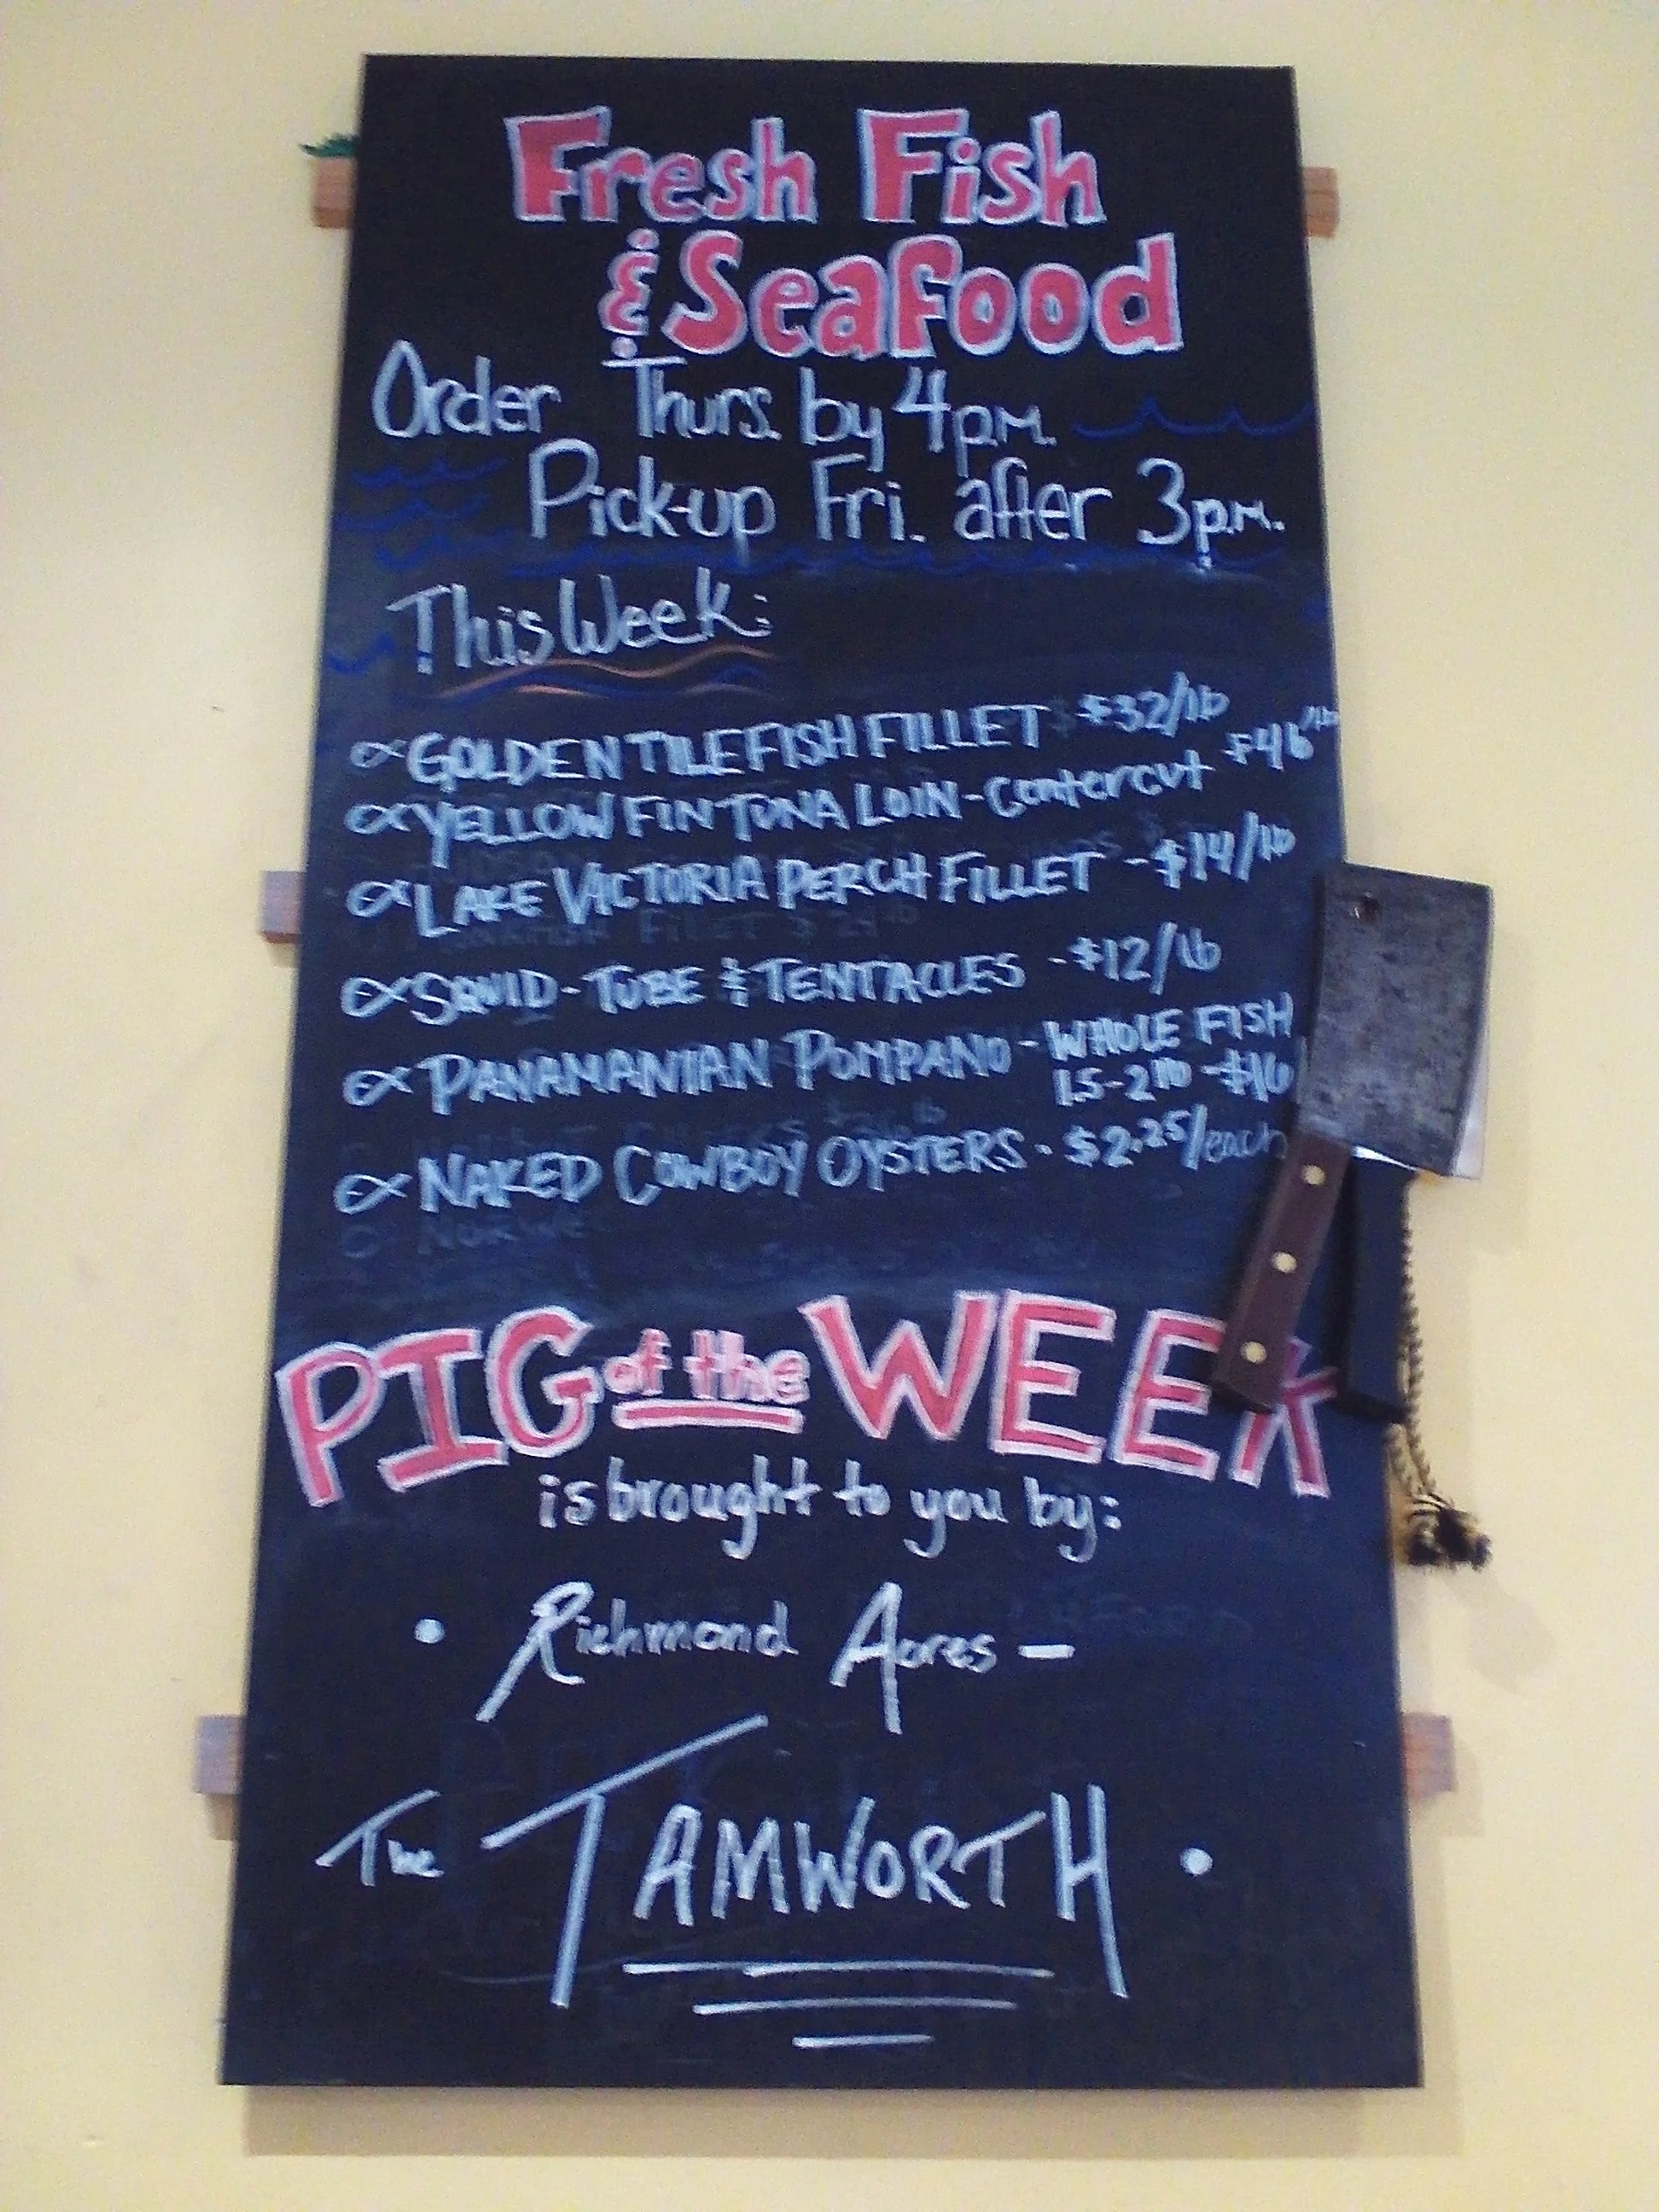 Fresh Fish
& Seafood
Order Thurs. by 4p.m.
Pick-up Fri. after 3p.m.
This Week:
GOLDEN TILEFISH FILLET $32/lb
YELLOW FIN TUNA LOIN - Centercut $46/lb
LAKE VICTORIA PERCH FILLET - $14/lb
SQUID - TUBE & TENTACLES - $12/lb
PANAMANIAN POMPANO - WHOLE FISH
1.5-2lb - $16
NAKED COWBOY OYSTERS - $2.25/each
PIG of the WEEK
is brought to you by:
• Richmond Acres —
The TAMWORTH •